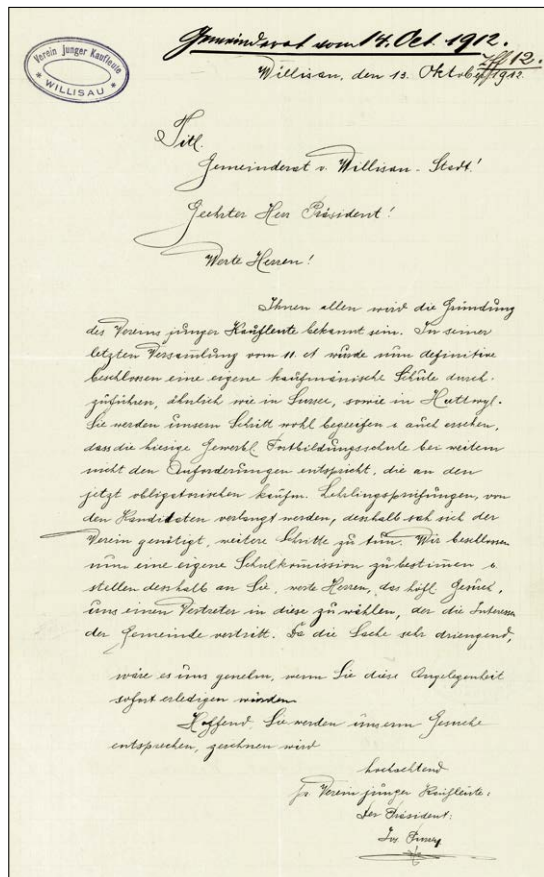 Gemeinderat vom 14. Oct. 1912.
Verein junger Kaufleute
* WILLISAU *
12.
Willisau, den 13. Oktober 1912.
Titl.
Gemeinderat v. Willisau-Stadt!
Geehrter Herr Präsident!
Werte Herren!
Ihnen allen wird die Gründung
des Vereins junger Kaufleute bekannt sein. In seiner
letzten Versammlung vom 11. ct wurde nun definitiv
beschlossen eine eigene kaufmänische Schule durch-
zuführen, ähnlich wie in Sursee, sowie in Huttwyl.
Sie werden unsern Schritt wohl begreifen & auch ersehen,
dass die hiesige Gewerbl. Fortbildungsschule bei weitem
nicht den Anforderungen entspricht, die an den
jetzt obligatorischen kaufm. Lehrlingsprüfungen, von
den Kandidaten verlangt werden, deshalb sah sich der
Verein genötigt, weitere Schritte zu tun. Wir beschlossen
nun eine eigene Schulkomission zu bestimmen &
stellen desshalb an Sie, werte Herren, das höfl. Gesuch,
uns einen Vertreter in diese zu wählen, der die Interessen
der Gemeinde vertritt. Da die Sache sehr driengend,
wäre es uns genehm, wenn Sie diese Angelegenheit
sofort erledigen würden.
Hoffend, Sie werden unserm Gesuche
entsprechen, zeichnen wird
hochachtend
Verein junger Kaufleute:
Der Präsident:
Jos.